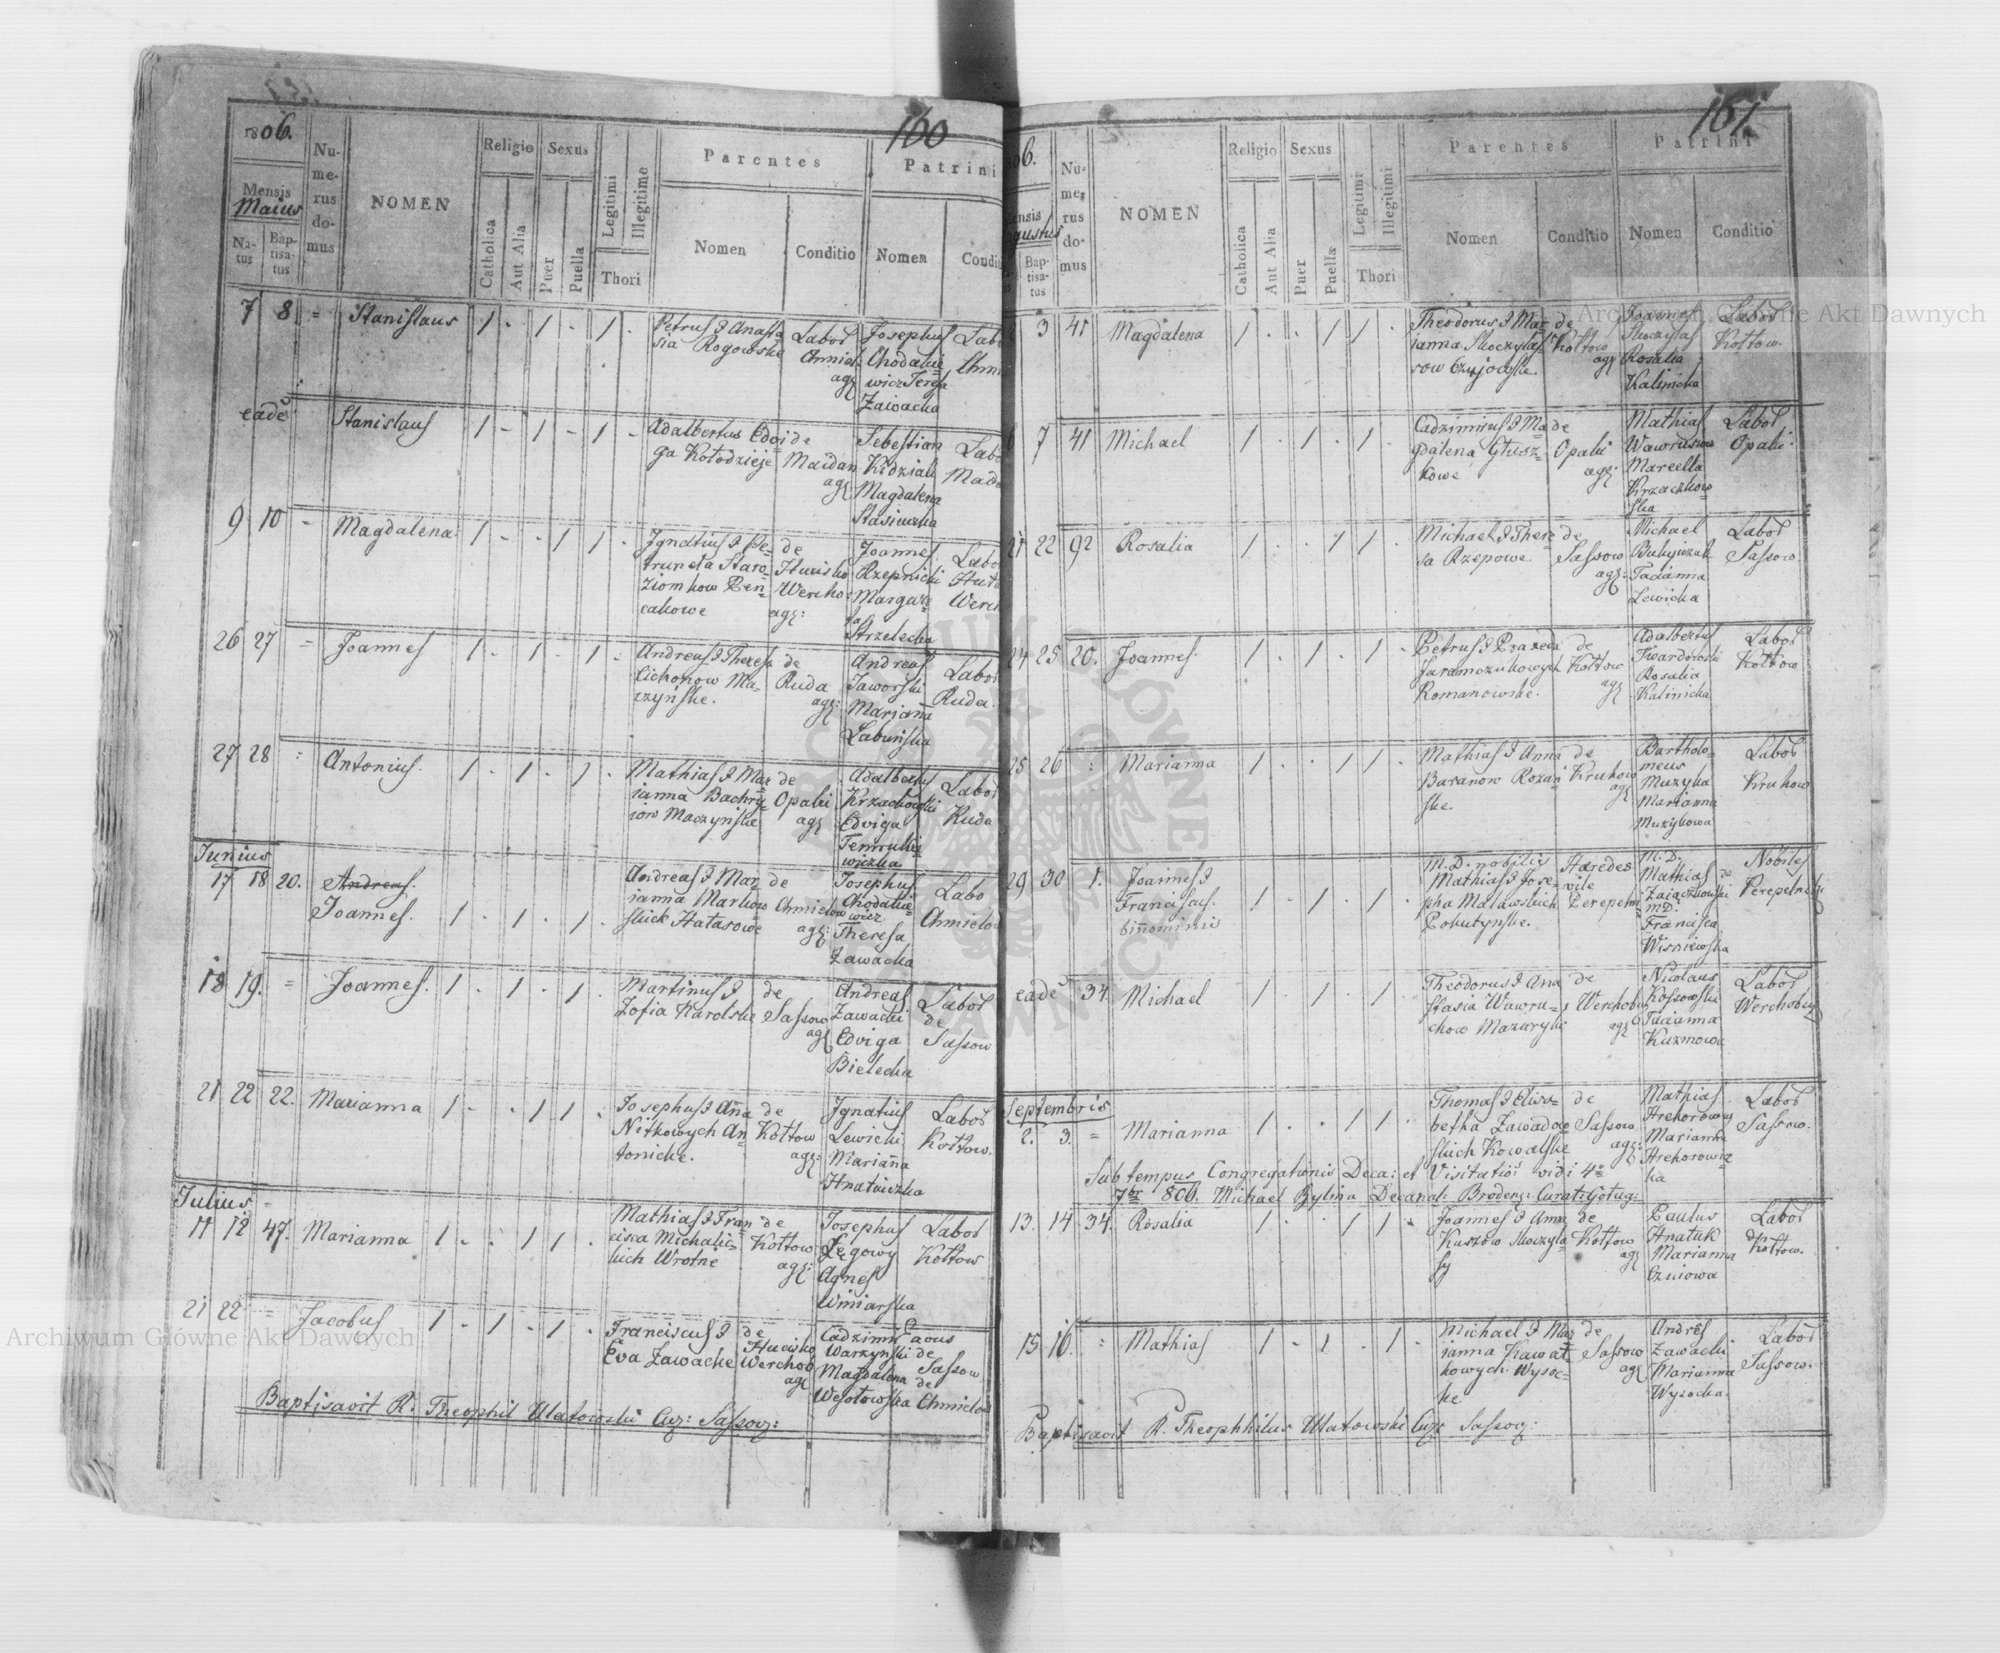 160
1806.
Mensis
Maius
Na-
tus
Bap-
tisa-
tus
Nu-
me-
rus
do-
mus
NOMEN
Religio
Catholica
Aut Alia
Sexus
Puer
Puella
Legitimi
Illegitime
Thori
Parentes
Nomen
Conditio
Patrini
Nomen
7 8 = Stanislaus 1 - 1 - 1 -
Petrus & Anasta
sia Rogowske
Labor
Chmiel
agr
Josephus
Chodakie
wicz Teresa
Zawacka
eade
Stanislaus 1 - 1 - 1 -
Adalbertus Edvi
ga Kołodzieje
de
Maidan
agr
Sebestian
Kidziak
Magdalena
Stasiuczka
9 10 - Magdalena 1 - - 1 1 -
Ignatius & Pe-
trunela Staro-
ziomkow Pen-
cakowe
de
Hucisko
Wercho:
agr:
Joannes
Rzepnicki
Margare
ta
Strzelecka
26 27 = Joannes 1 - 1 - 1 -
Andreas & Theresa
Cichonow Ma-
czyńske.
de
Ruda
agr:
Andreas
Jaworski
Marianna
Łabuńska
Labor
Ruda.
27 28 : Antonius. 1 - 1 - 1 -
Mathias & Mar
ianna Bachry-
iow Maczyńske
de
Opaki
agr
Adalbertus
Krzackowski
Edviga
wiczka
Labor
Ruda
Junius
17 18 20. Andreas.
Joannes. 1 - 1 - 1 -
Andreas & Mar
ianna Markow
skick Hałasowe
de
Chmielow
agr:
Josephus
Chodakie-
wicz
Theresa
Zawacka
Labo
Chmielow
18 19. = Joannes. 1 - 1 - 1 -
Martinus &
Zofia Karolske
de
Sassow
agr
Andreas
Zawacki
Edviga
Bielecka
Labor
de
Sassow
21 22 22. Marianna 1 - - 1 1 -
Josephus & Aña
Nitkowych An
tonicke.
de
Kołtow
agr:
Ignatius
Lewicki
Mariaña
Hnatiuczka
Labor
Kołtow.
Julius
11 12 47. Marianna 1 - - 1 1 -
Mathias & Fran
cisca Michalic-
kich Wrotne
de
Kołtow
agr:
Josephus
Łęgowy
Agnes
Winiarska
Labor
Kołtow
21 22 = Jacobus 1 - 1 - 1 -
Franciscus &
Eva Zawacke
de
Hucisko
Werchob
agr
Cadzimir
Warzynski
Magdalena
Wesołowska
de
Sassow
de
Chmielow
Baptisavit R. Theophil Ulatowski Cur: Sassow:
161.
06.
Mensis
Augustus
Bap-
tisa-
tus
Nu-
me-
rus
do-
mus
NOMEN
Religio
Catholica
Aut Alia
Sexus
Puer
Puella
Legitimi
Illegitimi
Thori
Parentes
Nomen
Conditio
Patrini
Nomen
Conditio
3 41 Magdalena 1 - - 1 1 -
Theodorus & Mar
ianna Skoczylas
de
Kołtow
agr
Joannes
Skoczylas
Rosalia
Kalinicka
Labor
Kołtow.
7 41 Michael 1 - 1 - 1 -
Cadzimirus & Ma
gdalena Głusz-
kowe
de
Opaki
agr:
Mathias
Marcella
Krzaczkow-
ska
Labor
Opaki:
21 22 92 Rosalia 1 - - 1 1 -
Michael & There
sa Rzepowe
de
Sassow
agr:
Michael
Tacianna
Lewicka
Labor
Sassow.
24 25 20. Joannes. 1 - 1 - 1 -
Petrus & Praxeda
Jaramczukowych
Romanowske.
de
Kołtow
agr
Adalbertus
Twardowski
Rosalia
Kalinicka
Labor
Kołtow
25 26 : Marianna 1 - - 1 1 -
Mathias & Anna
Baranow Rozań
ske.
de
Kruhow
agr
Bartholo-
meus
Muzyka
Marianna
Muzykowa
Labor
Kruhow
29 30 1. Joannes &
Franciscus.
biñominis 1 - 1 - 1 -
M.D. nobilis
Mathias & Jose-
pha Malawskich
Pokutynske.
Haeredes
vile
Perepeln
M.D.
Mathias
Zaiączkowski
M.D.
Francisca
Wiśniewska
Nobiles
de
Perepelniki
eade 34. Michael 1 - 1 - 1 -
Theodorus & Ana
stasia Wawru-
chow Mazaryki
de
Werchobus
agr
Nicolaus
Kossowski
Tacianna
Kuzmowa
Labor
Werchobuz
Septembris
2. 3. = Marianna 1 - - 1 1 -
Thomas & Elisa-
betha Zawadow
skich Kowalske
de
Sassow
agr:
Mathias
Hrehorowicz
Marianna
Hrehorowicz-
ka
Labor
Sassow.
Sub tempus Congregationis Deca: et Visitatiõs vidi 4ta
7br 806. Michael Bylina Decanal: Brodens: Curat: Gołog:
13. 14 34. Rosalia 1 - - 1 1 -
Joannes & Anna
Kuszow Skoczyla
sy
de
Kołtow
agr
Paulus
Hnatuk
Marianna
Labor
de
Kołtow.
15 16. : Mathias 1 - 1 - 1 -
Michael & Mar
ianna Kawał
kowych Wysoc-
ke
de
Sassow
agr
Andres
Zawacki
Marianna
Wysocka.
Labor
Sassow.
Baptisavit R. Theophhilus Ulatowski Cur Sassow:
Archiwum Główne Akt Dawnych
Archiwum Główne Akt Dawnych
ARCHIWUM GŁÓWNE AKT DAWNYCH